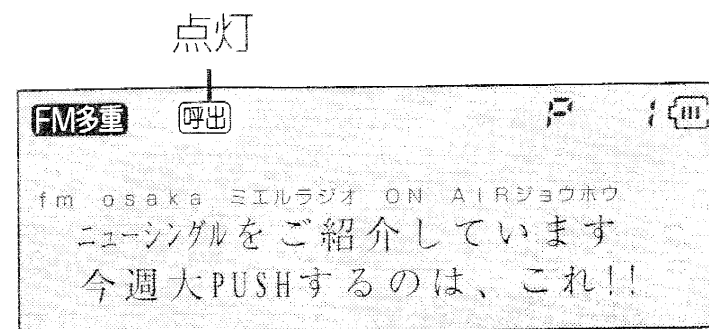 点灯
FM多重 呼出 P 1
fm osaka ミエルラジオ ON AIRジョウホウ
ニューシングルをご紹介しています
今週大PUSHするのは、これ!!